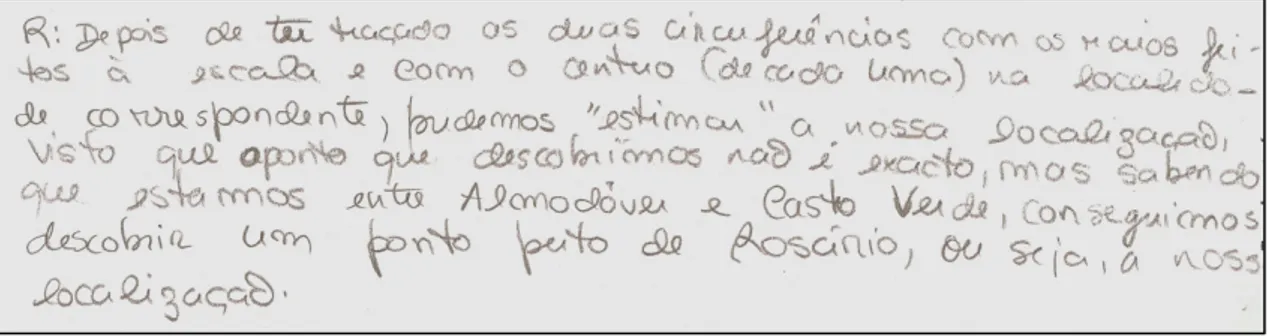 R: Depois de ter traçado as duas circunferências com os raios fei-
tos à escala e com o centro (de cada uma) na localida-
de correspondente, pudemos "estimar" a nossa localização,
visto que o ponto que descobrimos não é exacto, mas sabendo
que estamos entre Almodôver e Casto Verde, conseguimos
descobrir um ponto perto de Rosário, ou seja, a noss
localização.